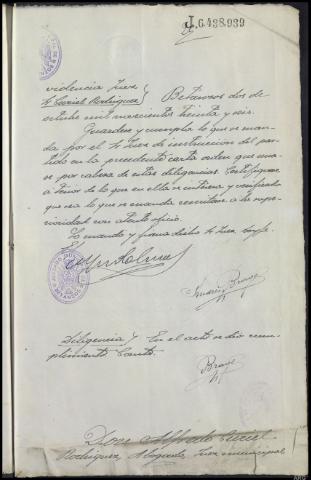 J.6.438.939
Providencia Juez
Sr Curiel Rodriguez } Betanzos dos de
octubre mil novecientos treinta y seis.
Guardese y cumpla lo que se man-
da por el Sr Juez de instruccion del par-
tido en la precedente carta orden que une-
se por cabeza de estas diligencias. Certifiquese
a tenor de lo que en ella se interesa y verificado
que sea lo que se manda remitase a la supe-
rioridad con atento oficio.
Lo mando y firma dicho Sr Juez doy fe.
Bravo
Diligencia } En el acto se dio cum-
plimiento. Consta.
Bravo
Don Alfredo Curiel
Rodriguez, Abogado Juez municipal